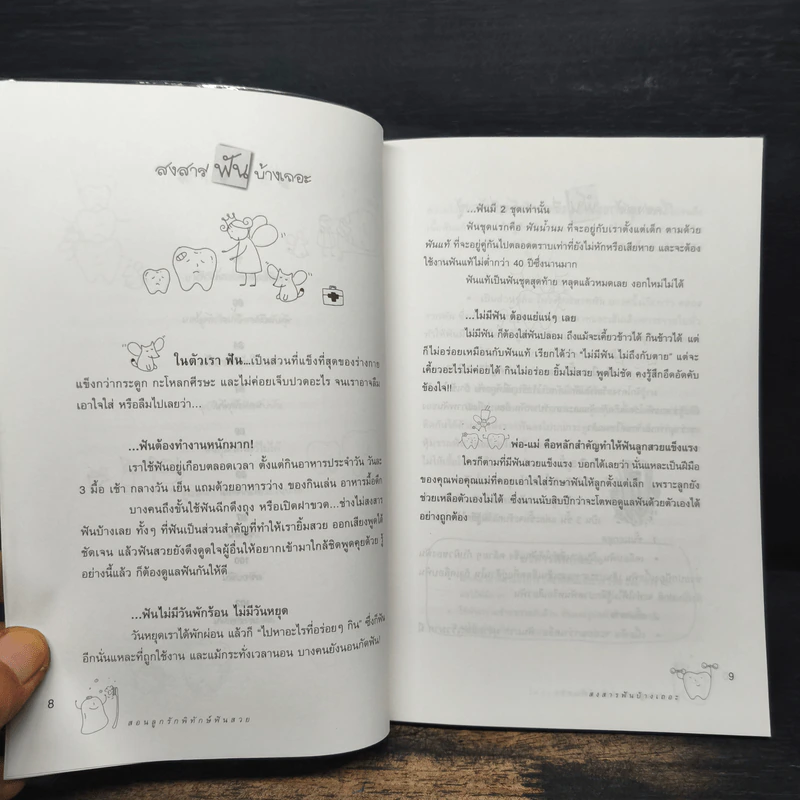 สงสารฟันบ้างเถอะ
ในตัวเรา ฟัน...เป็นส่วนที่แข็งที่สุดของร่างกาย
แข็งกว่ากระดูก กะโหลกศีรษะ และไม่ค่อยเจ็บปวดอะไร จนเราอาจลืม
เอาใจใส่ หรือลืมไปเลยว่า...
...ฟันต้องทำงานหนักมาก!
เราใช้ฟันอยู่เกือบตลอดเวลา ตั้งแต่กินอาหารประจำวัน วันละ
3 มื้อ เช้า กลางวัน เย็น แถมด้วยอาหารว่าง ของกินเล่น อาหารมื้อดึก
บางคนถึงขั้นใช้ฟันฉีกดึงถุง หรือเปิดฝาขวด...ช่างไม่สงสาร
ฟันบ้างเลย ทั้งๆ ที่ฟันเป็นส่วนสำคัญที่ทำให้เรายิ้มสวย ออกเสียงพูดได้
ชัดเจน แล้วฟันสวยยังดึงดูดใจผู้อื่นให้อยากเข้ามาใกล้ชิดพูดคุยด้วย รู้
อย่างนี้แล้ว ก็ต้องดูแลฟันกันให้ดี
...ฟันไม่มีวันพักร้อน ไม่มีวันหยุด
วันหยุดเราได้พักผ่อน แล้วก็ "ไปหาอะไรที่อร่อยๆ กิน" ซึ่งก็ฟัน
อีกนั่นแหละที่ถูกใช้งาน และแม้กระทั่งเวลานอน บางคนยังนอนกัดฟัน!
8
สอนลูกรักพิทักษ์ฟันสวย
...ฟันมี 2 ชุดเท่านั้น
ฟันชุดแรกคือ ฟันน้ำนม ที่จะอยู่กับเราตั้งแต่เด็ก ตามด้วย
ฟันแท้ ที่จะอยู่คู่กันไปตลอดตราบเท่าที่ยังไม่หักหรือเสียหาย และจะต้อง
ใช้งานฟันแท้ไม่ต่ำกว่า 40 ปีซึ่งนานมาก
ฟันแท้เป็นฟันชุดสุดท้าย หลุดแล้วหมดเลย งอกใหม่ไม่ได้
...ไม่มีฟัน ต้องแย่แน่ๆ เลย
ไม่มีฟัน ก็ต้องใส่ฟันปลอม ถึงแม้จะเคี้ยวข้าวได้ กินข้าวได้ แต่
ก็ไม่อร่อยเหมือนกับฟันแท้ เรียกได้ว่า "ไม่มีฟัน ไม่ถึงกับตาย" แต่จะ
เคี้ยวอะไรไม่ค่อยได้ กินไม่อร่อย ยิ้มไม่สวย พูดไม่ชัด คงรู้สึกอึดอัดคับ
ข้องใจ!!
พ่อ-แม่ คือหลักสำคัญทำให้ฟันลูกสวยแข็งแรง
ใครก็ตามที่มีฟันสวยแข็งแรง บอกได้เลยว่า นั่นแหละเป็นฝีมือ
ของคุณพ่อคุณแม่ที่คอยเอาใจใส่รักษาฟันให้ลูกตั้งแต่เด็ก เพราะลูกยัง
ช่วยเหลือตัวเองไม่ได้ ซึ่งนานนับสิบปีกว่าจะโตพอดูแลฟันด้วยตัวเองได้
อย่างถูกต้อง
สงสารฟันบ้างเถอะ
9